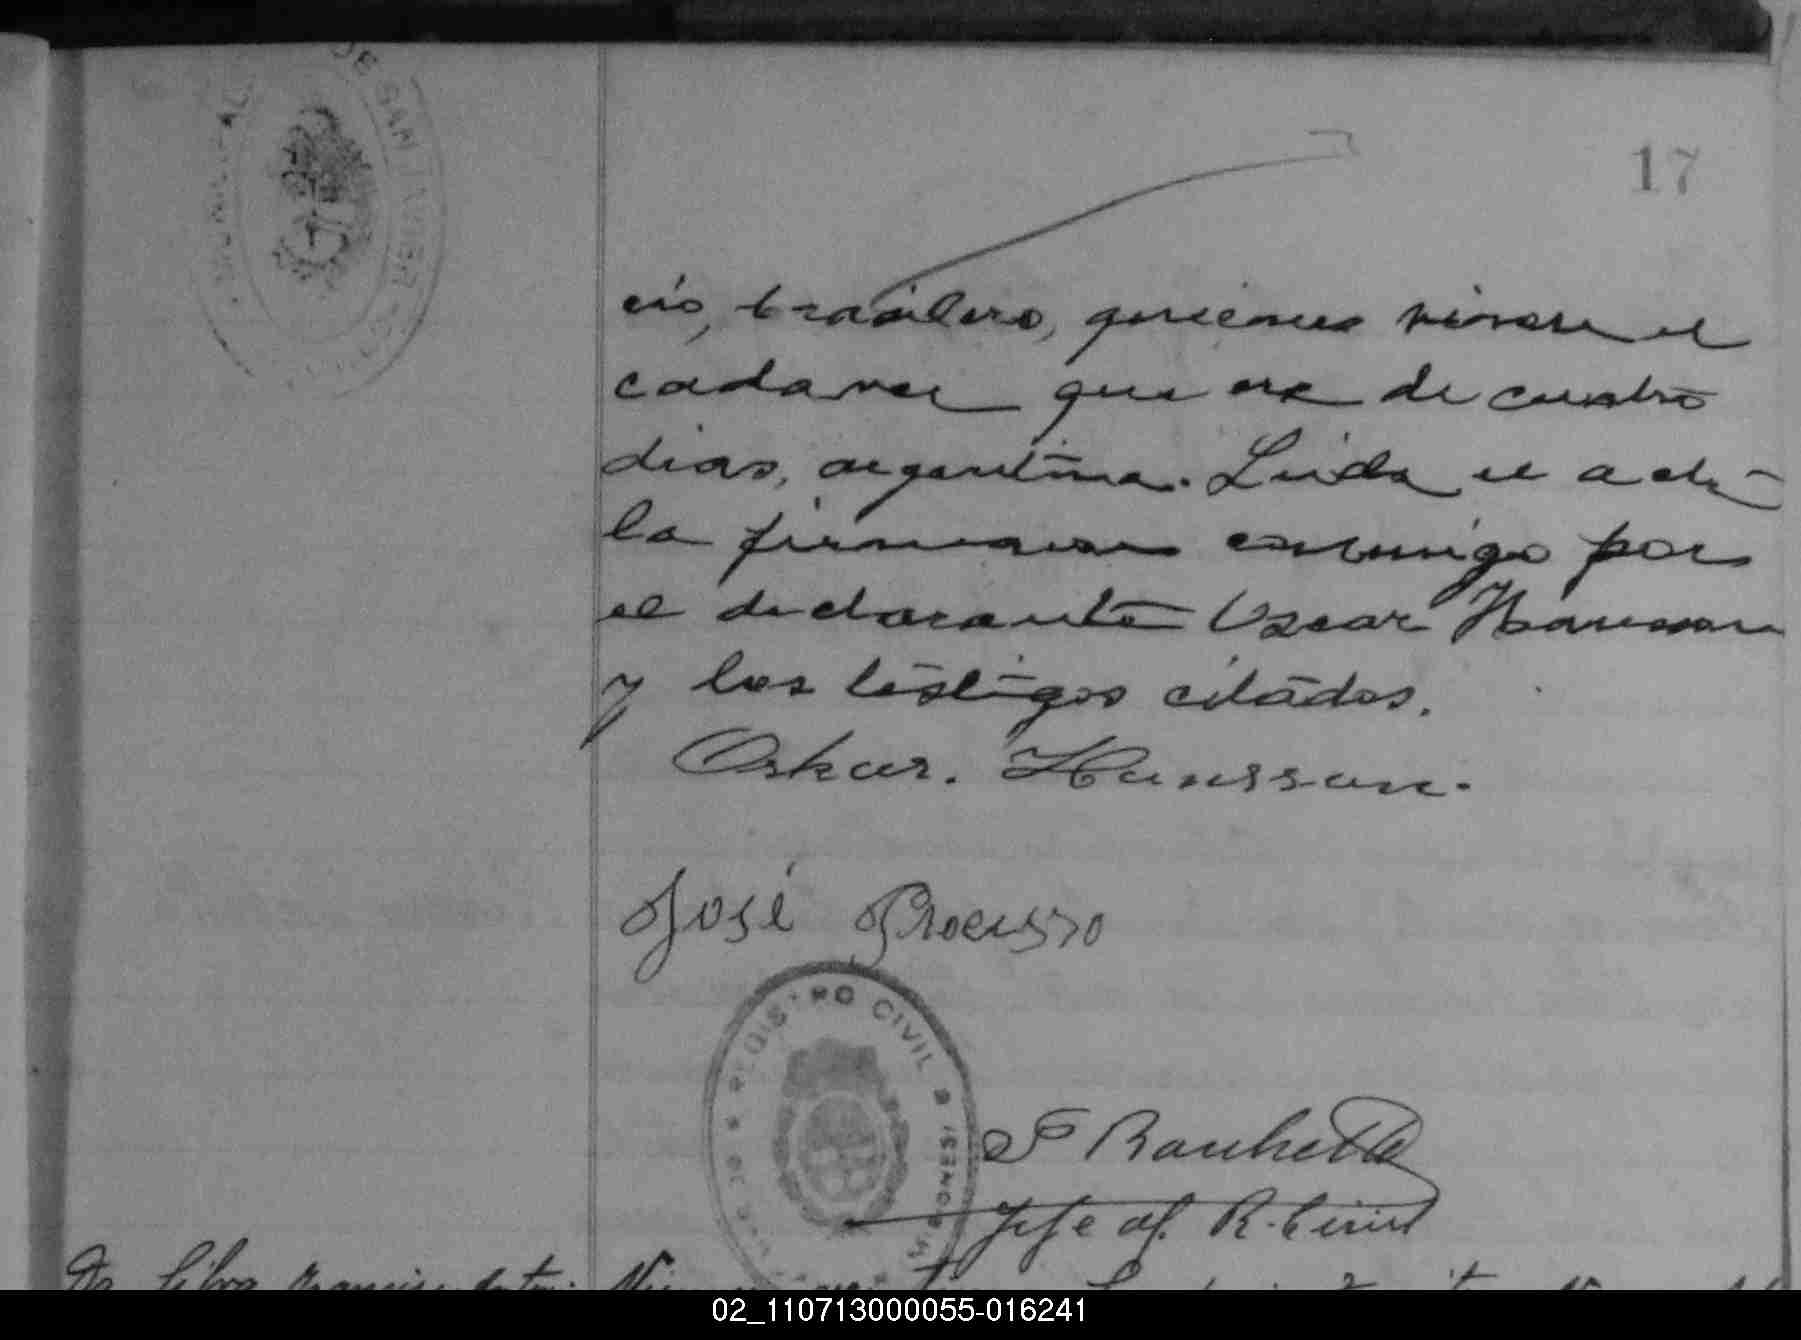 DE SAN JAVIER
17
cio, brasilero, quienes vieron el
cadaver que era de cuatro
dias, argentina. Leida el acta
la firmaron conmigo por
el declarante Oscar Hansson
y los testigos citados.
Oskar. Hansson.
José
REGISTRO CIVIL
MISIONES
Jefe of. R. Civil
Da Silva
02_110713000055-016241